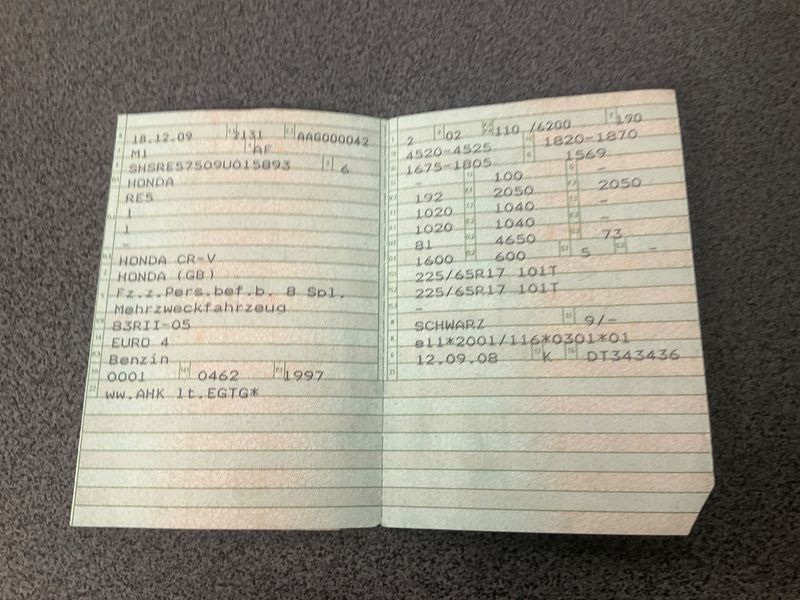 18.12.09 2131 AAG000042
M1 AF
SHSRE57509U015893 6
HONDA
RE5
1
1
-
HONDA CR-V
HONDA (GB)
Fz.z.Pers.bef.b. 8 Spl.
Mehrzweckfahrzeug
83RII-05
EURO 4
Benzin
0001 0462 1997
ww.AHK lt.EGTG*
2 02 110 /6200 190
4520-4525 1820-1870
1675-1805 1569
- 100 -
192 2050 2050
1020 1040 -
1020 1040 -
81 4650 73
1600 600 5 -
225/65R17 101T
225/65R17 101T
-
SCHWARZ 9/-
e11*2001/116*0301*01
12.09.08 K DT343436